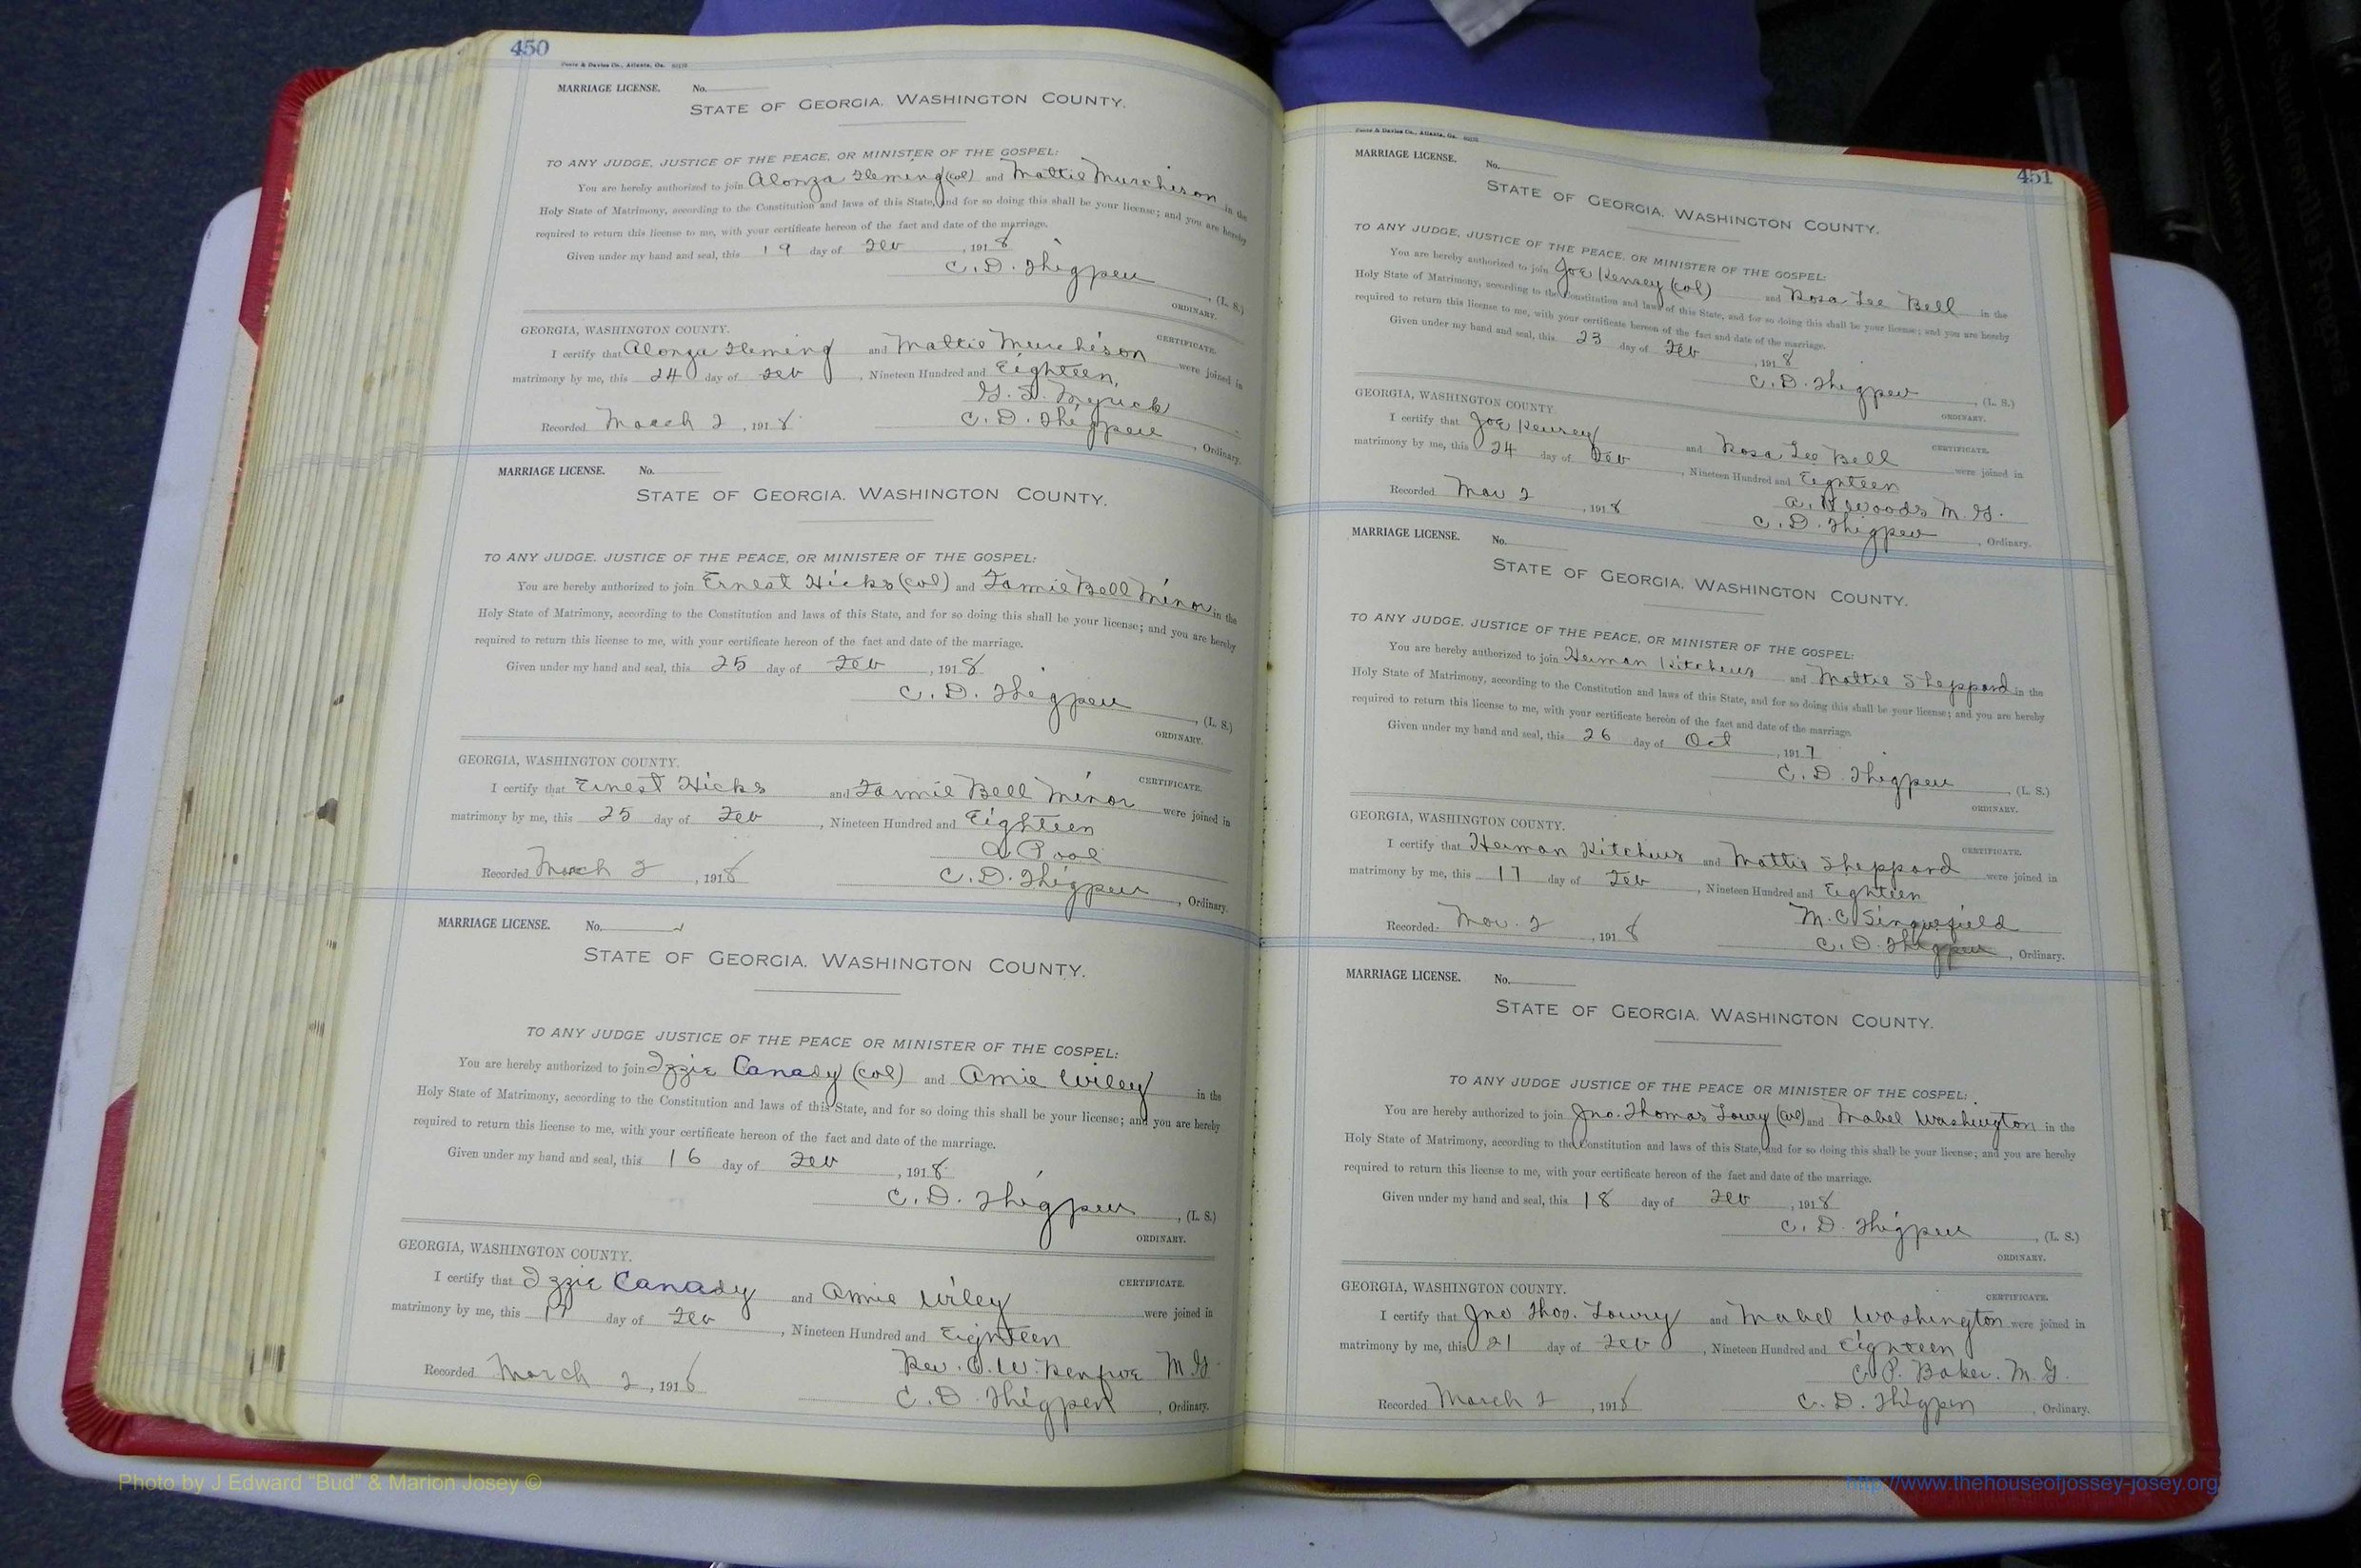 450
Foote & Davies Co., Atlanta, Ga.
MARRIAGE LICENSE. No.
STATE OF GEORGIA, WASHINGTON COUNTY.
TO ANY JUDGE, JUSTICE OF THE PEACE, OR MINISTER OF THE GOSPEL:
You are hereby authorized to join Alonza Fleming (col) and Mattie Murchison in the
Holy State of Matrimony, according to the Constitution and laws of this State, and for so doing this shall be your license; and you are hereby
required to return this license to me, with your certificate hereon of the fact and date of the marriage.
Given under my hand and seal, this 19 day of Feb, 1918
C. D. Thigpen, (L. S.)
ORDINARY.
GEORGIA, WASHINGTON COUNTY.
CERTIFICATE.
I certify that Alonza Fleming and Mattie Murchison were joined in
matrimony by me, this 24 day of Feb, Nineteen Hundred and Eighteen,
G. S. Myrick
Recorded March 2, 1918. C. D. Thigpen, Ordinary.
MARRIAGE LICENSE. No.
STATE OF GEORGIA, WASHINGTON COUNTY.
TO ANY JUDGE, JUSTICE OF THE PEACE, OR MINISTER OF THE GOSPEL:
You are hereby authorized to join Ernest Hicks (col) and Fannie Bell Minor in the
Holy State of Matrimony, according to the Constitution and laws of this State, and for so doing this shall be your license; and you are hereby
required to return this license to me, with your certificate hereon of the fact and date of the marriage.
Given under my hand and seal, this 25 day of Feb, 1918
C. D. Thigpen, (L. S.)
ORDINARY.
GEORGIA, WASHINGTON COUNTY.
CERTIFICATE.
I certify that Ernest Hicks and Fannie Bell Minor were joined in
matrimony by me, this 25 day of Feb, Nineteen Hundred and Eighteen
A Pool
Recorded March 2, 1918 C. D. Thigpen, Ordinary.
MARRIAGE LICENSE. No.
STATE OF GEORGIA, WASHINGTON COUNTY.
TO ANY JUDGE JUSTICE OF THE PEACE OR MINISTER OF THE GOSPEL:
You are hereby authorized to join Izzie Canady (col) and Annie Wiley in the
Holy State of Matrimony, according to the Constitution and laws of this State, and for so doing this shall be your license; and you are hereby
required to return this license to me, with your certificate hereon of the fact and date of the marriage.
Given under my hand and seal, this 16 day of Feb, 1918
C. D. Thigpen, (L. S.)
ORDINARY.
GEORGIA, WASHINGTON COUNTY.
CERTIFICATE.
I certify that Izzie Canady and Annie Wiley were joined in
matrimony by me, this 17 day of Feb, Nineteen Hundred and Eighteen
Rev. W. Renfroe M. G.
Recorded March 2, 1918 C. D. Thigpen, Ordinary.
451
Foote & Davies Co., Atlanta, Ga.
MARRIAGE LICENSE. No.
STATE OF GEORGIA, WASHINGTON COUNTY.
TO ANY JUDGE, JUSTICE OF THE PEACE, OR MINISTER OF THE GOSPEL:
You are hereby authorized to join Joe Kensey (col) and Rosa Lee Bell in the
Holy State of Matrimony, according to the Constitution and laws of this State, and for so doing this shall be your license; and you are hereby
required to return this license to me, with your certificate hereon of the fact and date of the marriage.
Given under my hand and seal, this 23 day of Feb, 1918
C. D. Thigpen, (L. S.)
ORDINARY.
GEORGIA, WASHINGTON COUNTY
CERTIFICATE.
I certify that Joe Kensey and Rosa Lee Bell were joined in
matrimony by me, this 24 day of Feb, Nineteen Hundred and Eighteen
A. Woods M. G.
Recorded Mar 2, 1918 C. D. Thigpen, Ordinary.
MARRIAGE LICENSE. No.
STATE OF GEORGIA, WASHINGTON COUNTY.
TO ANY JUDGE, JUSTICE OF THE PEACE, OR MINISTER OF THE GOSPEL:
You are hereby authorized to join Herman Kitchens and Mattie Sheppard in the
Holy State of Matrimony, according to the Constitution and laws of this State, and for so doing this shall be your license; and you are hereby
required to return this license to me, with your certificate hereon of the fact and date of the marriage.
Given under my hand and seal, this 26 day of Oct, 1917
C. D. Thigpen, (L. S.)
ORDINARY.
GEORGIA, WASHINGTON COUNTY.
CERTIFICATE.
I certify that Herman Kitchens and Mattie Sheppard were joined in
matrimony by me, this 17 day of Feb, Nineteen Hundred and Eighteen
M. C. Singuefield
Recorded Mar. 2, 1918 C. D. Thigpen, Ordinary.
MARRIAGE LICENSE. No.
STATE OF GEORGIA, WASHINGTON COUNTY.
TO ANY JUDGE JUSTICE OF THE PEACE OR MINISTER OF THE GOSPEL:
You are hereby authorized to join Jno. Thomas Lowry (col) and Mabel Washington in the
Holy State of Matrimony, according to the Constitution and laws of this State, and for so doing this shall be your license; and you are hereby
required to return this license to me, with your certificate hereon of the fact and date of the marriage.
Given under my hand and seal, this 18 day of Feb, 1918
C. D. Thigpen, (L. S.)
ORDINARY.
GEORGIA, WASHINGTON COUNTY.
CERTIFICATE.
I certify that Jno Thos. Lowry and Mabel Washington were joined in
matrimony by me, this 21 day of Feb, Nineteen Hundred and Eighteen
C. P. Baker. M. G.
Recorded March 2, 1918 C. D. Thigpen, Ordinary.
Photo by J Edward "Bud" & Marion Josey ©
http://www.thehouseofjossey-josey.org